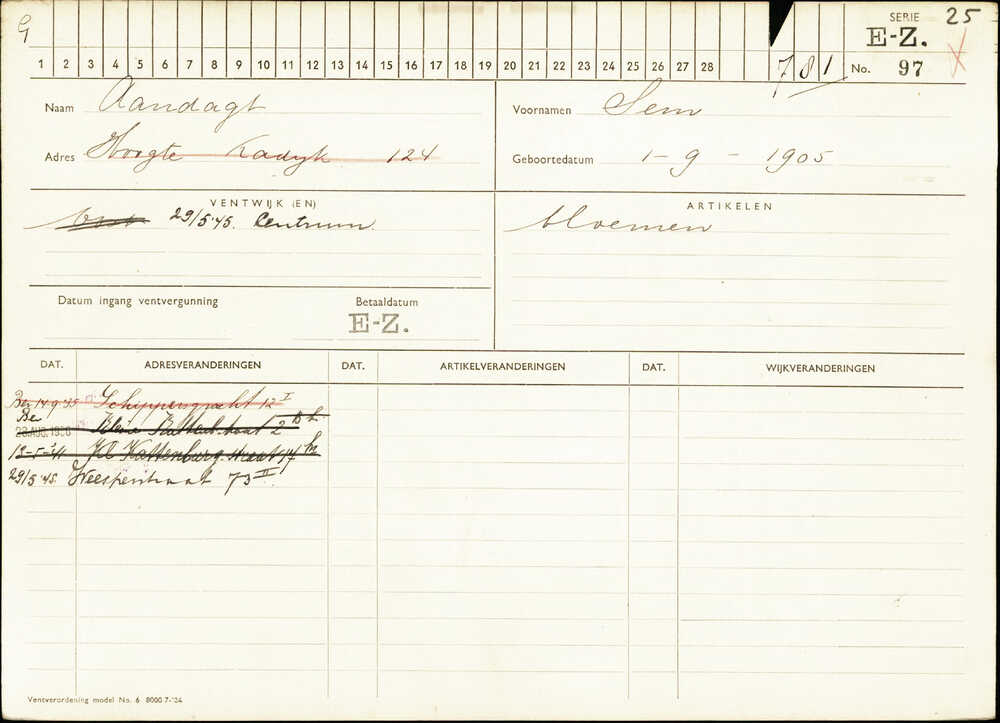 G
SERIE 25
E-Z.
1 2 3 4 5 6 7 8 9 10 11 12 13 14 15 16 17 18 19 20 21 22 23 24 25 26 27 28 781 No. 97
Naam Aandagt
Voornamen Sem
Adres Hoogte Kadyk 124
Geboortedatum 1-9-1905
VENTWIJK (EN)
29/5'45. Centrum.
ARTIKELEN
bloemen
Datum ingang ventvergunning
Betaaldatum
E-Z.
DAT. ADRESVERANDERINGEN DAT. ARTIKELVERANDERINGEN DAT. WIJKVERANDERINGEN
Ber 14-9-35 Schippersgracht 12 I
Be
28 AUG. 1936 Kleine straat 2
13-5-'41 Kl Kattenburg straat 14
29/5'45. Weesperstraat 73 II.
Ventverordening model No. 6 8000 7-'34